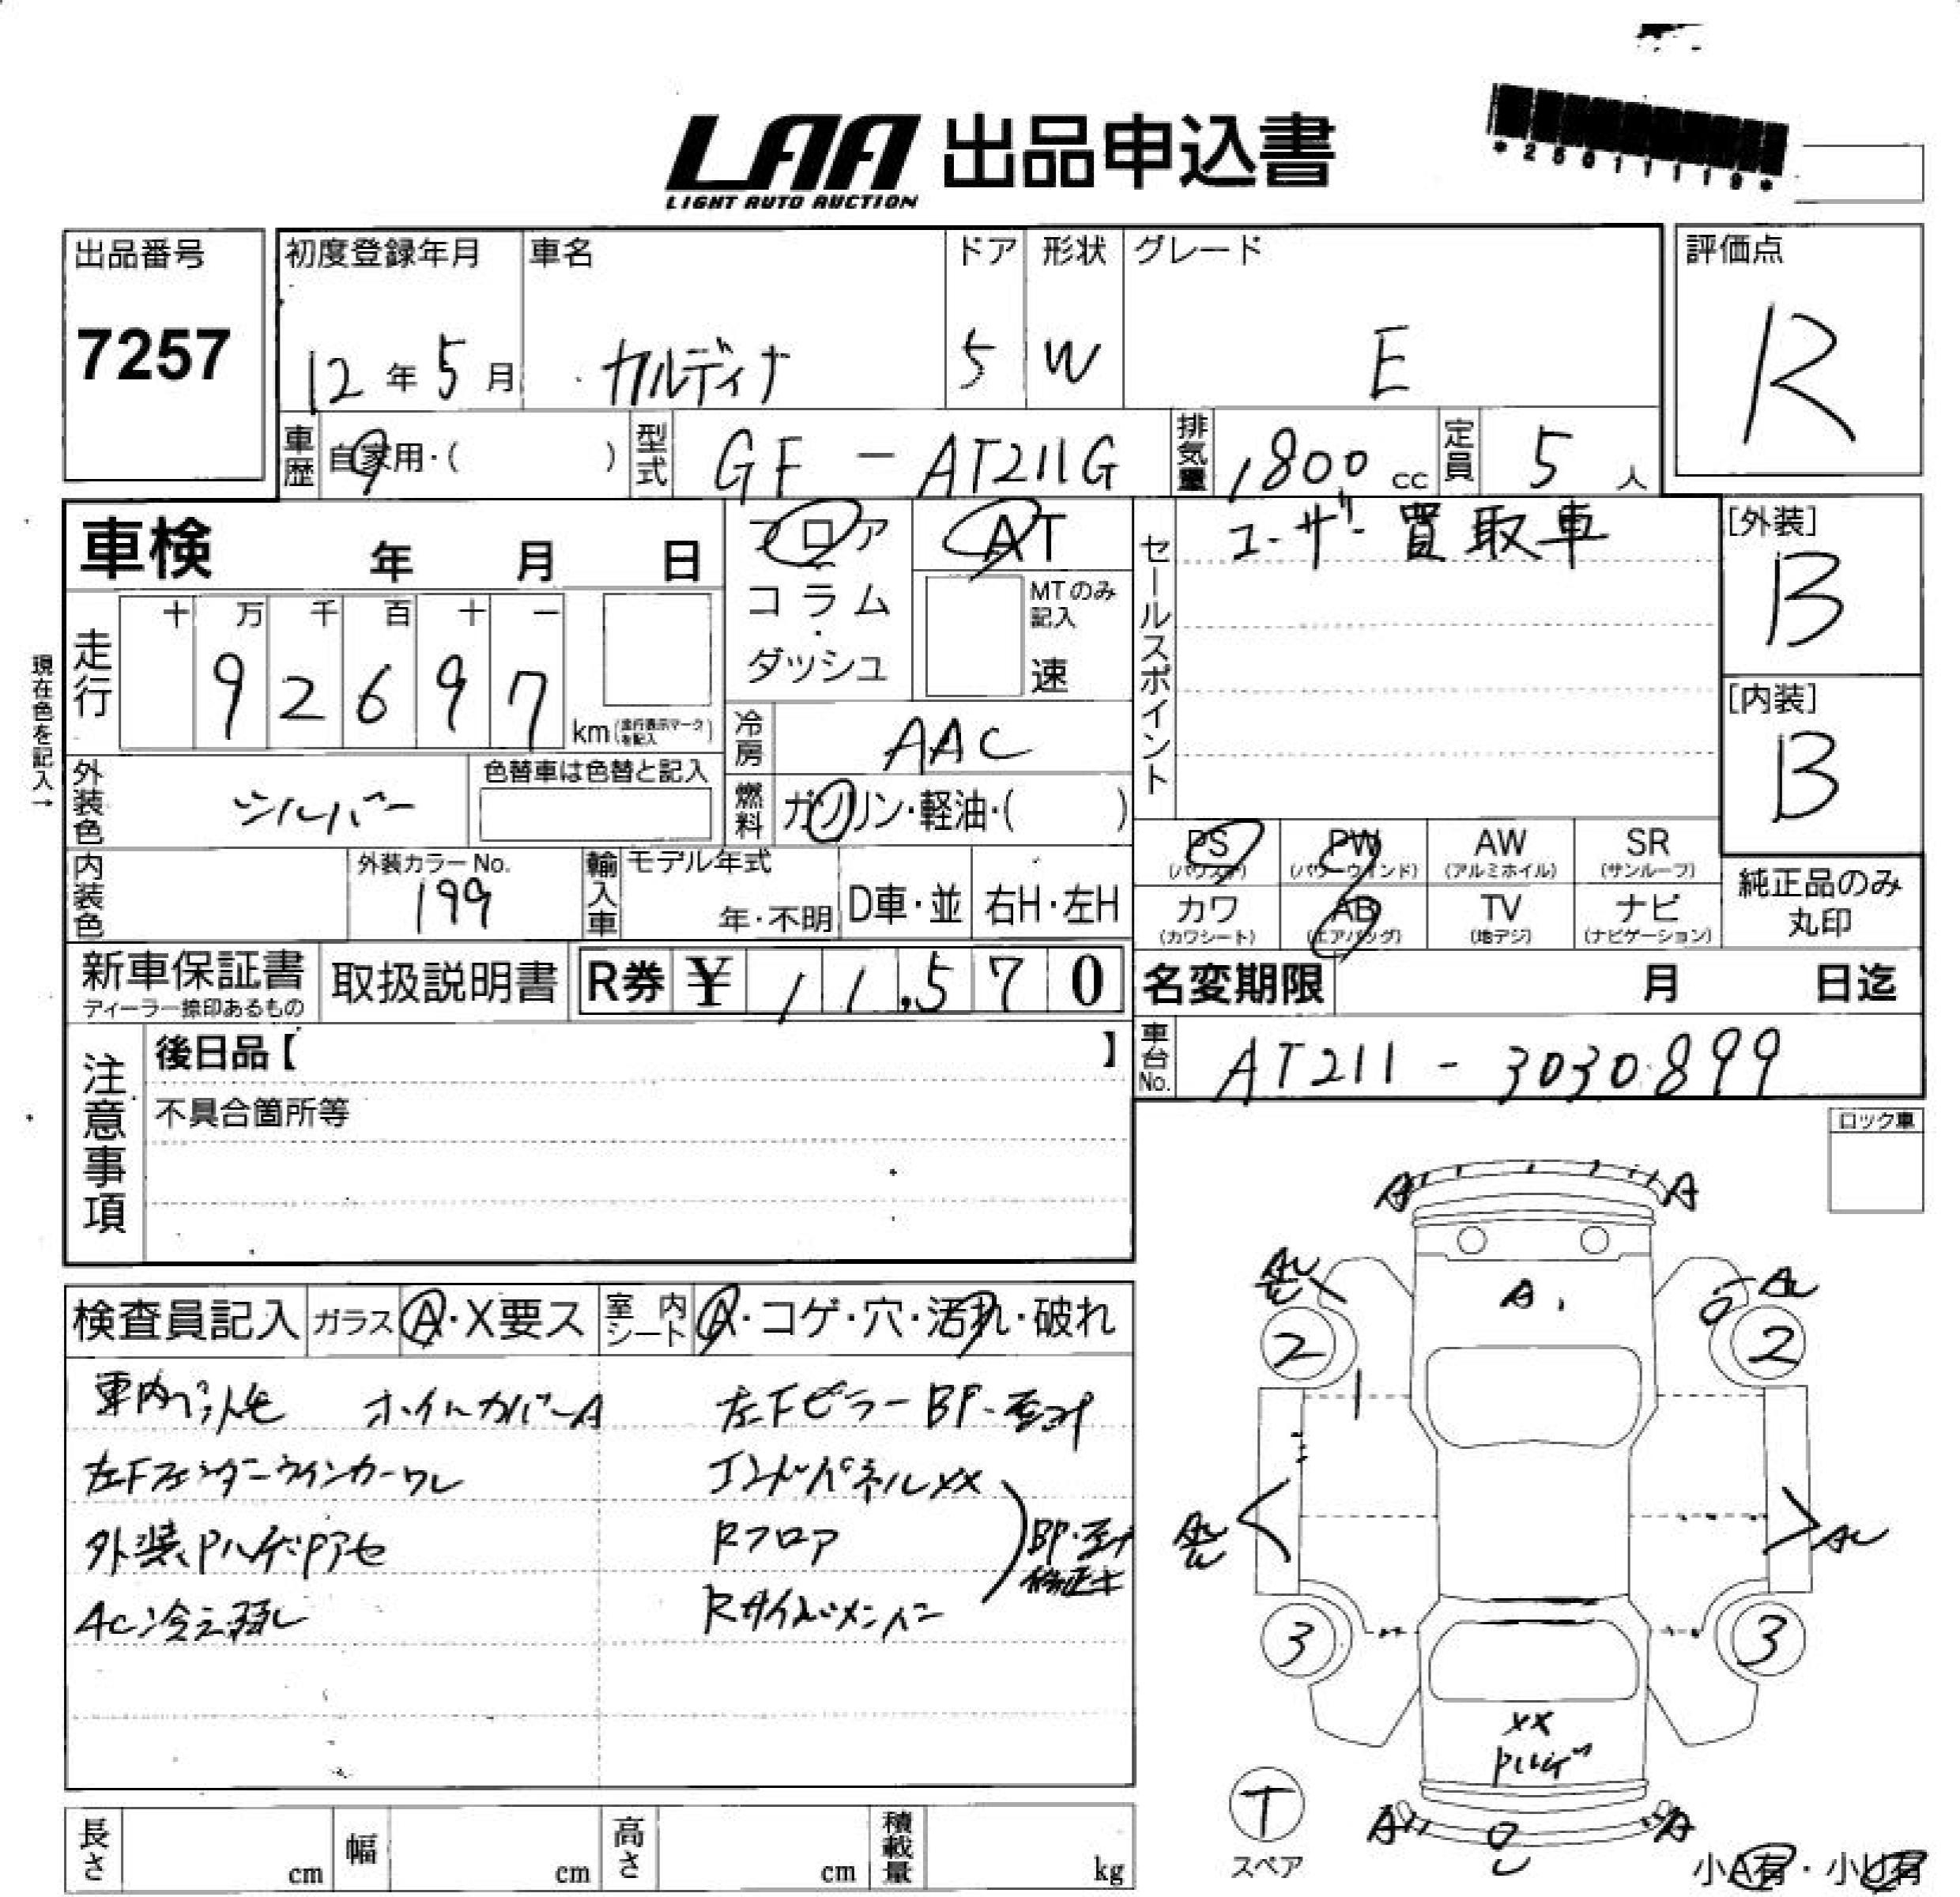 LAA 出品申込書
LIGHT AUTO AUCTION
出品番号
7257
初度登録年月
12年5月
車名
カルディナ
ドア
5
形状
W
グレード
E
評価点
R
車歴
自家用・( )
型式
GF-AT211G
排気量
1800cc
定員
5人
車検 年 月 日
フロア
コラム
・
ダッシュ
AT
MTのみ記入
速
セールスポイント
ユーザー買取車
[外装]
B
[内装]
B
現在色を記入→
走行
十 万 千 百 十 一
9 2 6 9 7
km(走行表示マークを記入)
冷房
AAC
外装色
シルバー
色替車は色替と記入
燃料
ガソリン・軽油・( )
内装色
外装カラーNo.
199
輸入車
モデル年式
年・不明
D車・並
右H・左H
PS
(パワステ)
PW
(パワーウインド)
AW
(アルミホイル)
SR
(サンルーフ)
カワ
(カワシート)
AB
(エアバッグ)
TV
(地デジ)
ナビ
(ナビゲーション)
純正品のみ
丸印
新車保証書
ディーラー捺印あるもの
取扱説明書
R券 ¥ 11,570
名変期限 月 日迄
車台No.
AT211-3030899
注意事項
後日品【 】
不具合箇所等
ロック車
検査員記入
ガラス
A・X要ス
室内シート
A・コゲ・穴・汚れ・破れ
車内ペット毛 ホイルカバーA
左Fフェンダーウインカーワレ
外装Pハゲ・Pアセ
AC冷え弱し
左Fピラー BP
エンドパネルXX
Rフロア
Rサイドメンバー
BP
修正キ
A A
A1
2 2
3 3
XX
Pハゲ
A A
T
スペア
小A有・小U有
長さ cm
幅 cm
高さ cm
積載量 kg